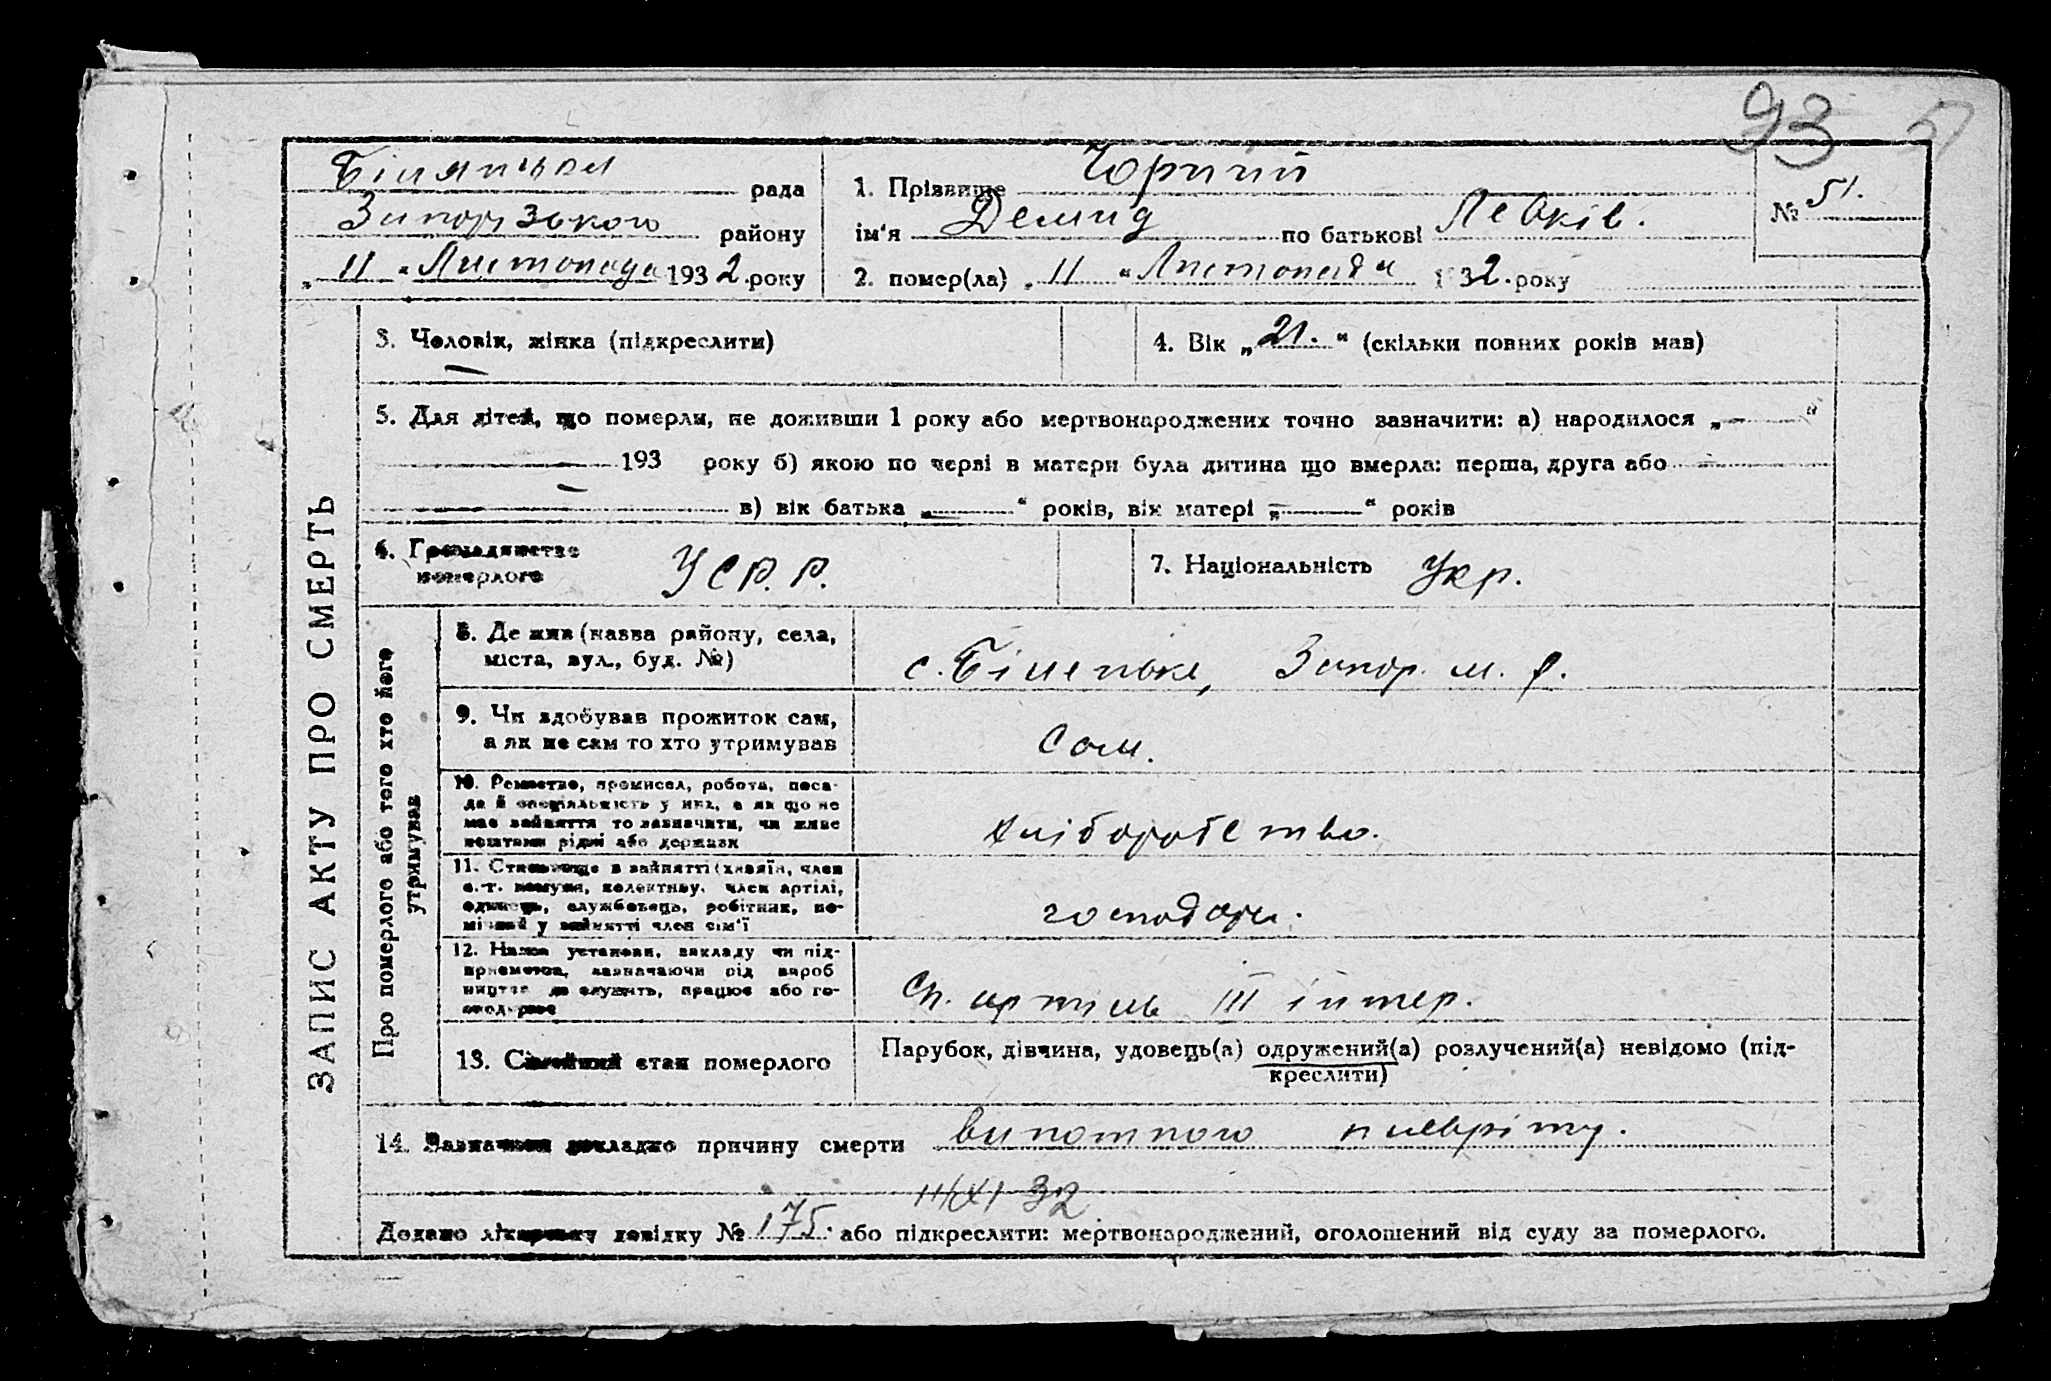 93
Білянська рада
Запорізького району
„ 11 “ Листопада 1932 року
1. Прізвище Чорний
ім'я Демид по батькові Левків.
2. помер(ла) „ 11 “ Листопада 1932 року
№ 51.
ЗАПИС АКТУ ПРО СМЕРТЬ
3. Чоловік, жінка (підкреслити)
4. Вік „ 21. “ (скільки повних років мав)
5. Для дітей, що померли, не доживши 1 року або мертвонароджених точно зазначити: а) народилося „ — “
— 193 року б) якою по черзі в матери була дитина що вмерла: перша, друга або —
— в) вік батька „ — “ років, вік матері „ — “ років
6. Громадянство
померлого
УСР.Р.
7. Національність Укр.
Про померлого або того хто його
утримував
8. Де жив (назва району, села,
міста, вул., буд. №)
с. Біленьке, Запор. м. р.
9. Чи здобував прожиток сам,
а як не сам то хто утримував
Сам.
10. Ремество, промисел, робота, поса-
да й спеціяльність у них, а як що не
має зайняття то зазначити, чи живе
коштами рідні або держави
хліборобство.
11. Становище в зайнятті (хазяїн, член
с.-г. комуни, колективу, член артілі,
одинець, службовець, робітник, по-
мічний у зайнятті член сім'ї
господар.
12. Назва установи, закладу чи під-
приємства, зазначаючи рід вироб
ництва де служить, працює або го-
сподарює
Сп. артіль III інтер.
13. Сімейний стан померлого
Парубок, дівчина, удовець(а) одружений(а) розлучений(а) невідомо (під-
креслити)
14. Зазначити докладно причину смерти випотного плеврiту.
11/XI 32
Додано лікарську довідку № 175. або підкреслити: мертвонароджений, оголошений від суду за померлого.